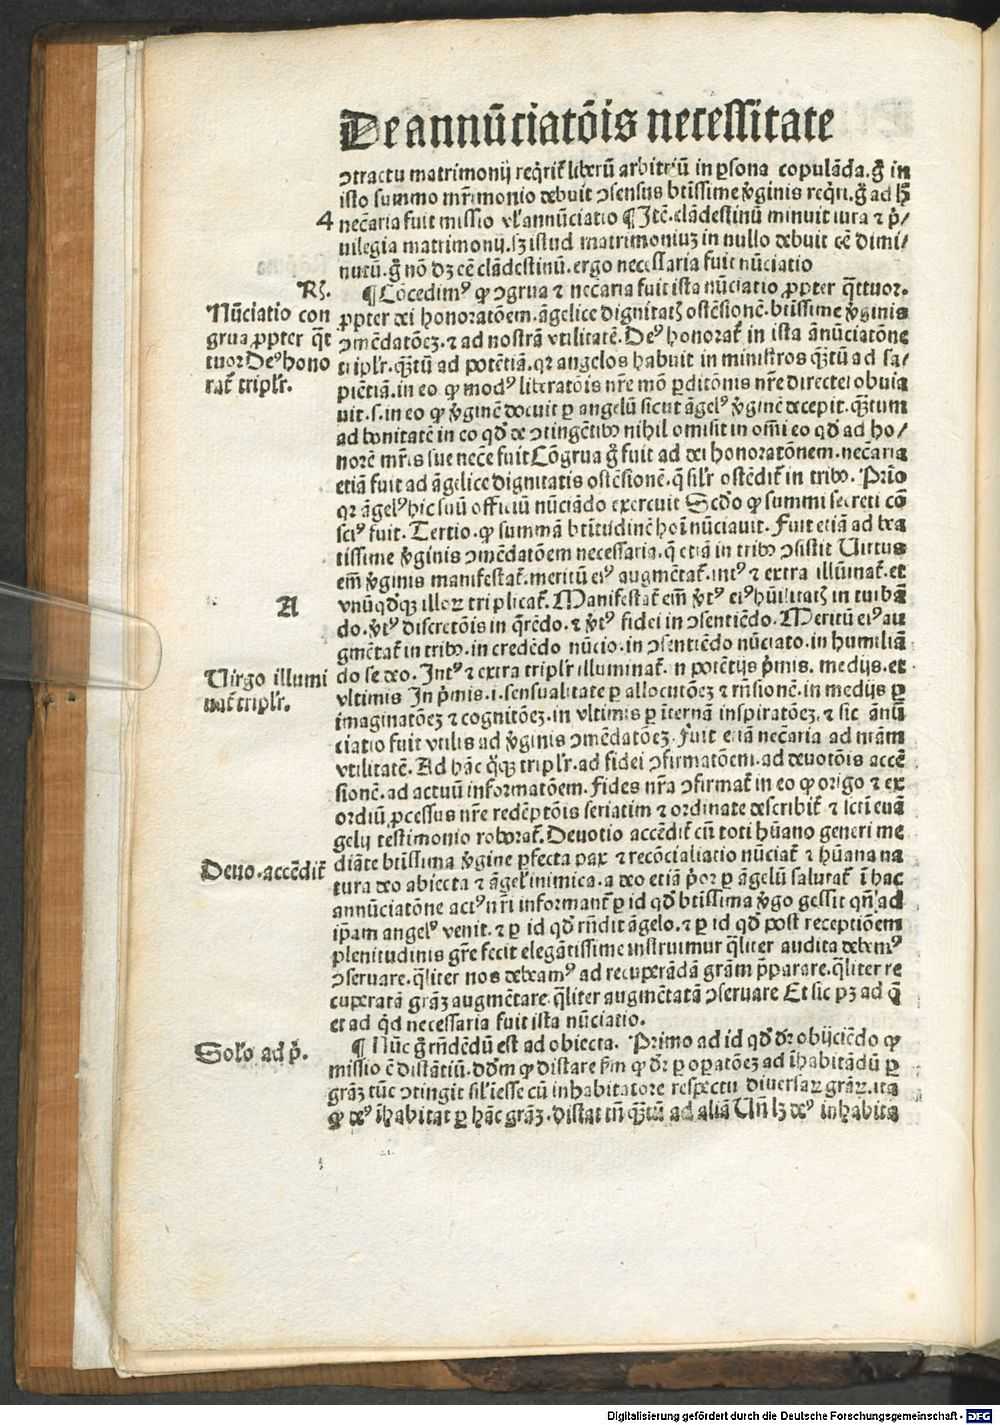 De annūciatōis necessitate
ɔtractu matrimonij reqͥrit̃ liberū arbitriū in ꝑsona copulāda. gͦ in
isto summo mr̃imonio debuit ɔsensus btissime v̾ginis reqͥri. gͦ ad hͦ
4 necāria fuit missio vl' annūciatio ¶ Itē. clādestinū minuit iura ⁊ p̾/
uilegia matrimonij. sꝫ istud matrimoniuꝫ in nullo debuit eē dimi/
nutū. gͦ nō dꝫ eē clādestinū. ergo necessaria fuit nūciatio
Rꝫ.
¶ Cōcedimꝰ ꝙ ɔgrua ⁊ necāria fuit ista nūciatio ꝓpter qͣttuor.
Nūciatio con
grua ꝓpter qͣt
tuor Deꝰ hono
rat̃ triplr̃.
ꝓpter dei honoratōem. āgelice dignitatꝭ ostēsionē. btissime v̾ginis
ɔmēdatōeꝫ. ⁊ ad nostrā vtilitatē. Deꝰ honorat̃ in ista ānūciatōne
triplr̃. qͣꝫtū ad potētiā. qꝛ angelos habuit in ministros qͣꝫtū ad sa/
piētiā. in eo ꝙ modꝰ liberatōis nr̃e mō ꝑditōnis nr̃e directe obuia
uit. s. in eo ꝙ v̾ginē docuit ꝑ angelū sicut āgelꝰ v̾ginē decepit. qͣꝫtum
ad bonitatē in eo qd̾ de ɔtingētibꝰ nihil omisit in om̄i eo qd̾ ad ho/
norē mr̃is sue necē fuit Cōgrua gͦ fuit ad dei honoratōnem. necāria
etiā fuit ad āgelice dignitatis ostēsionē. q̄ silr̃ ostēdit̃ in tribꝰ. Prīo
qꝛ āgelꝰ hic suū officiū nūciādo exercuit Scd̾o ꝙ summi secreti cō
sciꝰ fuit. Tertio. ꝙ summā btītudinē hoīi nūciauit. Fuit etiā ad bea
tissime v̾ginis ɔmēdatōem necessaria. q̄ etiā in tribꝰ ɔsistit Virtus
em̄ v̾ginis manifestat̃. meritū eiꝰ augmētat̃. intꝰ ⁊ extra illūinat̃. et
A
vnūqd̾qꝫ illoꝝ triplicat̃. Manifestat̃ em̄ v̾tꝰ eiꝰ hūilitatꝭ in turbā
do. v̾tꝰ discretōis in q̄rēdo. ⁊ v̾tꝰ fidei in ɔsentiēdo. Meritū eiꝰ au
gmētat̃ in tribꝰ. in credēdo nūcio. in ɔsentiēdo nūciato. in humiliā
Virgo illumi
nat̃ triplr̃.
do se deo. Intꝰ ⁊ extra triplr̃ illuminat̃. in potētijs p̾mis. medijs. et
vltimis In p̾mis. i. sensualitate ꝑ allocutōeꝫ ⁊ rn̄sionē. in medijs ꝑ
imaginatōeꝫ ⁊ cognitōeꝫ. in vltimis ꝑ īternā inspiratōeꝫ. ⁊ sic ānū
ciatio fuit vtilis ad v̾ginis ɔmēdatōeꝫ. Fuit etiā necāria ad nr̄am
vtilitatē. Ad hāc qͦqꝫ triplr̃. ad fidei ɔfirmatōem. ad deuotōis accē
sionē. ad actuū informatōem. Fides nr̃a ɔfirmat̃ in eo ꝙ origo ⁊ ex
ordiū ꝓcessus nr̃e redēptōis seriatim ⁊ ordinate describit̃ ⁊ sc̄i euā
gelij testimonio roborat̃. Deuotio accēdit̃ cū toti hūano generi me
Deuo. accēdit̃
diāte btissima v̾gine ꝑfecta pax ⁊ recōcialiatio nūciat̃ ⁊ hūana na
tura deo abiecta ⁊ āgelꝭ inimica. a deo etiā p̾or ꝑ āgelū salutat̃ ī hac
annūciatōne actꝰ nr̄i informant̃ ꝑ id qd̾ btissima v̾go gessit qn̄ ad
ip̄am angelꝰ venit. ⁊ ꝑ id qd̾ rn̄dit āgelo. ⁊ ꝑ id qd̾ post receptiōem
plenitudinis gr̃e fecit elegātissime instruimur qͣliter audita debemꝰ
ɔseruare. qͣliter nos debeamꝰ ad recuperādā grām p̄parare. qͣliter re
cuperatā grāꝫ augmētare. qͣliter augmētatā ɔseruare Et sic pꝫ ad qͥd
et ad qͥd necessaria fuit ista nūciatio.
Solꝰo ad p̾.
¶ Nūc gͦ rn̄dēdū est ad obiecta. Primo ad id qd̾ dr̃ obijciēdo ꝙ
missio ē distātiū. dd̾m ꝙ distare fm ꝙ dr̃ ꝑ oꝑatōeꝫ ad īhabitādū ꝑ
grāꝫ tūc ɔtingit sil' īesse cū inhabitatore respectu diuersaꝝ grāꝝ. ita
ꝙ deꝰ īhabitat ꝑ hāc grāꝫ. distat tn̄ qͣꝫtū ad aliā Un̄ lꝫ deꝰ inhabita
Digitalisierung gefördert durch die Deutsche Forschungsgemeinschaft - DFG